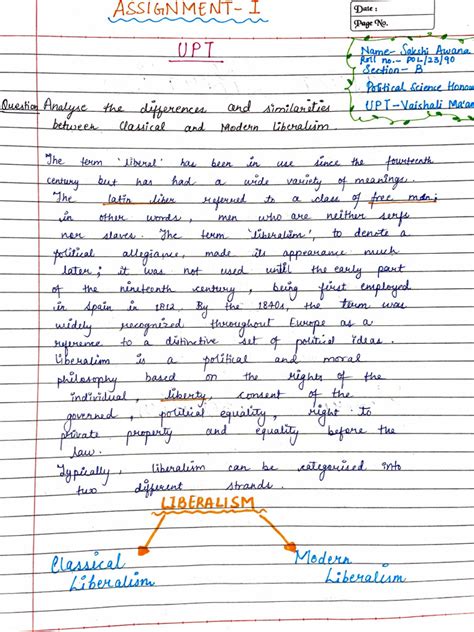 ASSIGNMENT-I
Date :
Page No.
UPT
Name- Sakshi Awana
Roll no.- POL/23/90
Section - B
Political Science Honou
UPT-Vaishali Ma'am
Question Analyse the differences and similarities
between Classical and Modern Liberalism.
The term 'liberal' has been in use since the fourteenth
century but has had a wide variety of meanings.
The latin liber referred to a class of free men;
in other words, men who are neither serfs
nor slaves. The term 'liberalism', to denote a
political allegiance, made its appearance much
later; it was not used until the early part
of the nineteenth century, being first employed
in Spain in 1812. By the 1840s, the term was
widely recognized throughout Europe as a
reference to a distinctive set of political ideas.
Liberalism is a political and moral
philosophy based on the rights of the
individual, liberty, consent of the
governed, political equality, right to
private property and equality before the
law.
Typically, liberalism can be categorised into
two different strands.
LIBERALISM
Classical Liberalism
Modern Liberalism